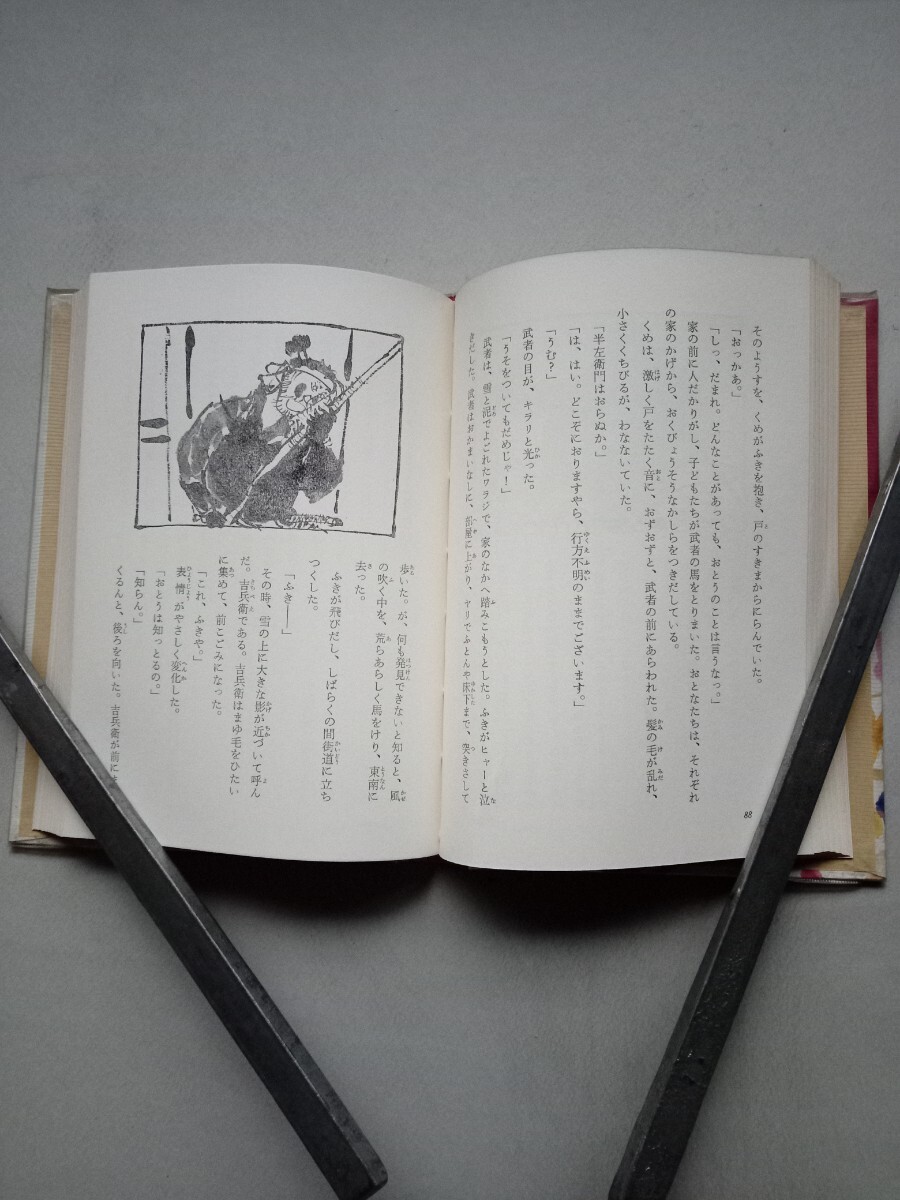 そのようすを、くめがふきを抱き、戸のすきまからにらんでいた。
「おっかあ。」
「しっ、だまれ。どんなことがあっても、おとうのことは言うなっ。」
家の前に人だかりがし、子どもたちが武者の馬をとりまいた。おとなたちは、それぞれ
の家のかげから、おくびょうそうなかしらをつきだしている。
くめは、激しく戸をたたく音に、おずおずと、武者の前にあらわれた。髪の毛が乱れ、
小さくくちびるが、わなないていた。
「半左衛門はおらぬか。」
「は、はい。どこそにおりますやら、行方不明のままでございます。」
「うむ？」
武者の目が、キラリと光った。
「うそをついてもだめじゃ！」
武者は、雪と泥でよごれたワラジで、家のなかへ踏みこもうとした。ふきがヒャーと泣
きだした。武者はおかまいなしに、部屋に上がり、ヤリでふとんや床下まで、突きさして
88
歩いた。が、何も発見できないと知ると、風
の吹く中を、荒らあらしく馬をけり、東南に
去った。
ふきが飛びだし、しばらくの間街道に立ち
つくした。
「ふき――」
その時、雪の上に大きな影が近づいて呼ん
だ。吉兵衛である。吉兵衛はまゆ毛をひたい
に集めて、前こごみになった。
「これ、ふきや。」
表情がやさしく変化した。
「おとうは知っとるの。」
「知らん。」
くるんと、後ろを向いた。吉兵衛が前に